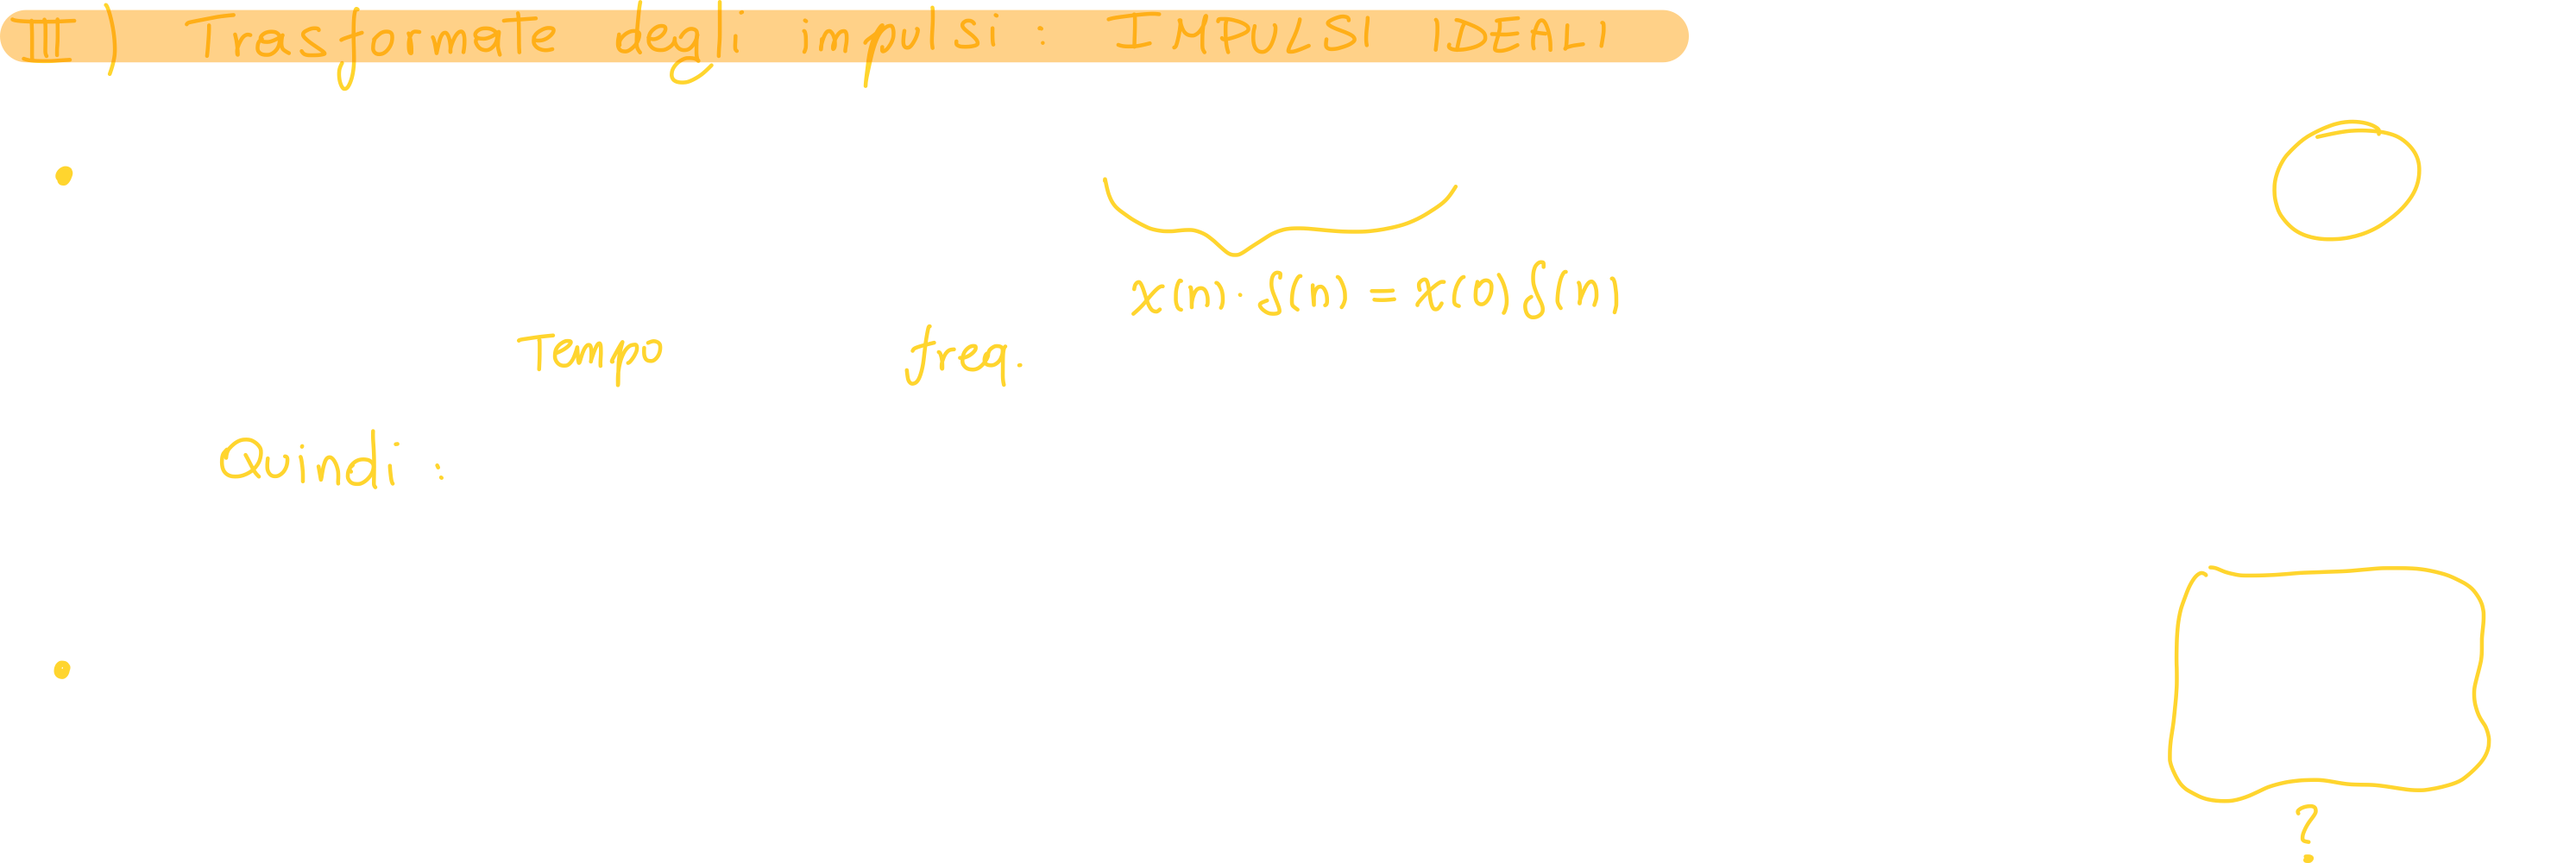 III) Trasformate degli impulsi: IMPULSI IDEALI
x(n)·δ(n) = x(0)δ(n)
Tempo freq.
Quindi:
?